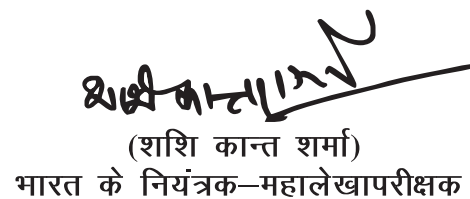 शशि कान्त शर्मा
(शशि कान्त शर्मा)
भारत के नियंत्रक–महालेखापरीक्षक